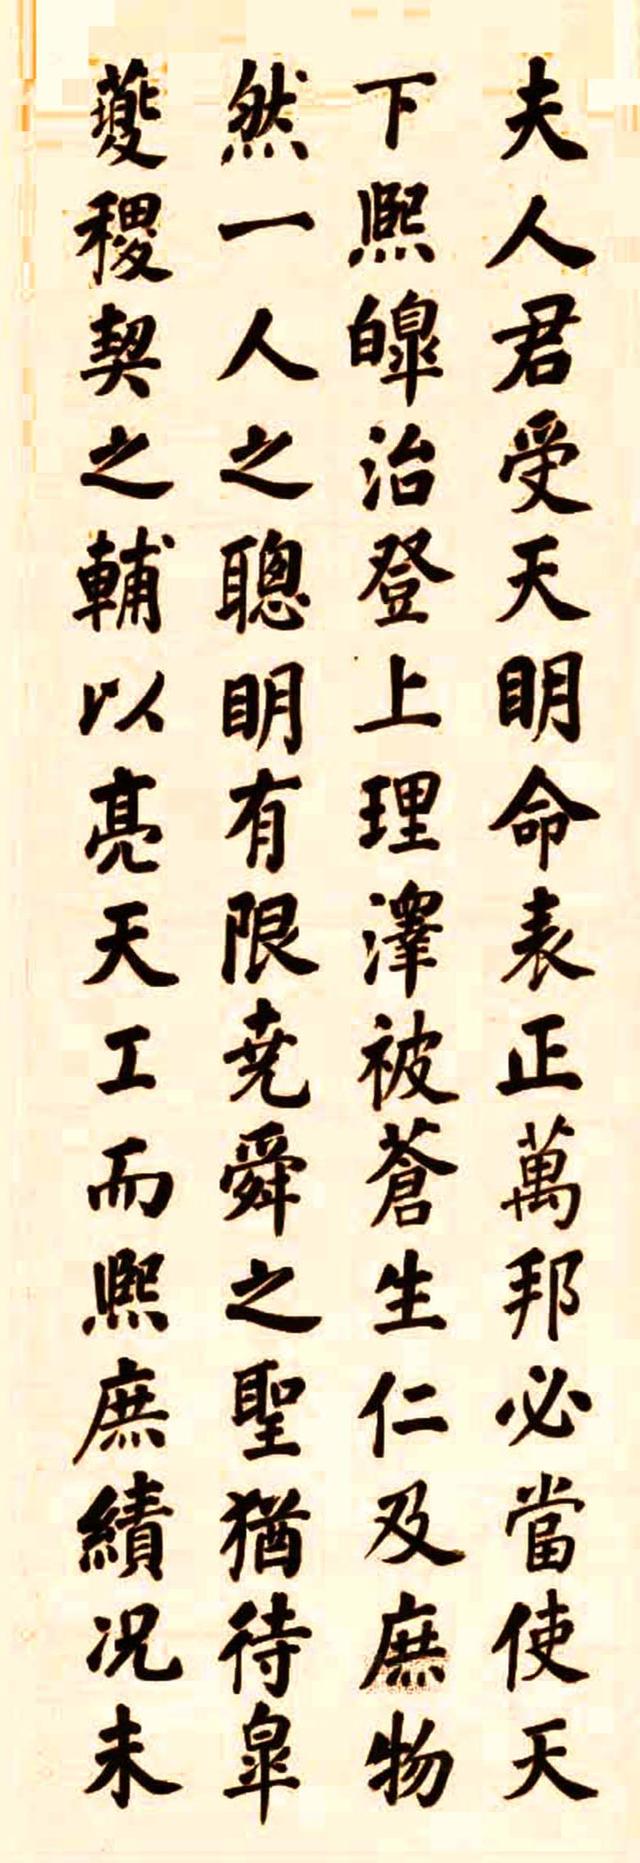 夫人君受天明命表正萬邦必當使天
下熙皞治登上理澤被蒼生仁及庶物
然一人之聰明有限堯舜之聖猶待皐
夔稷契之輔以亮天工而熙庶績况未